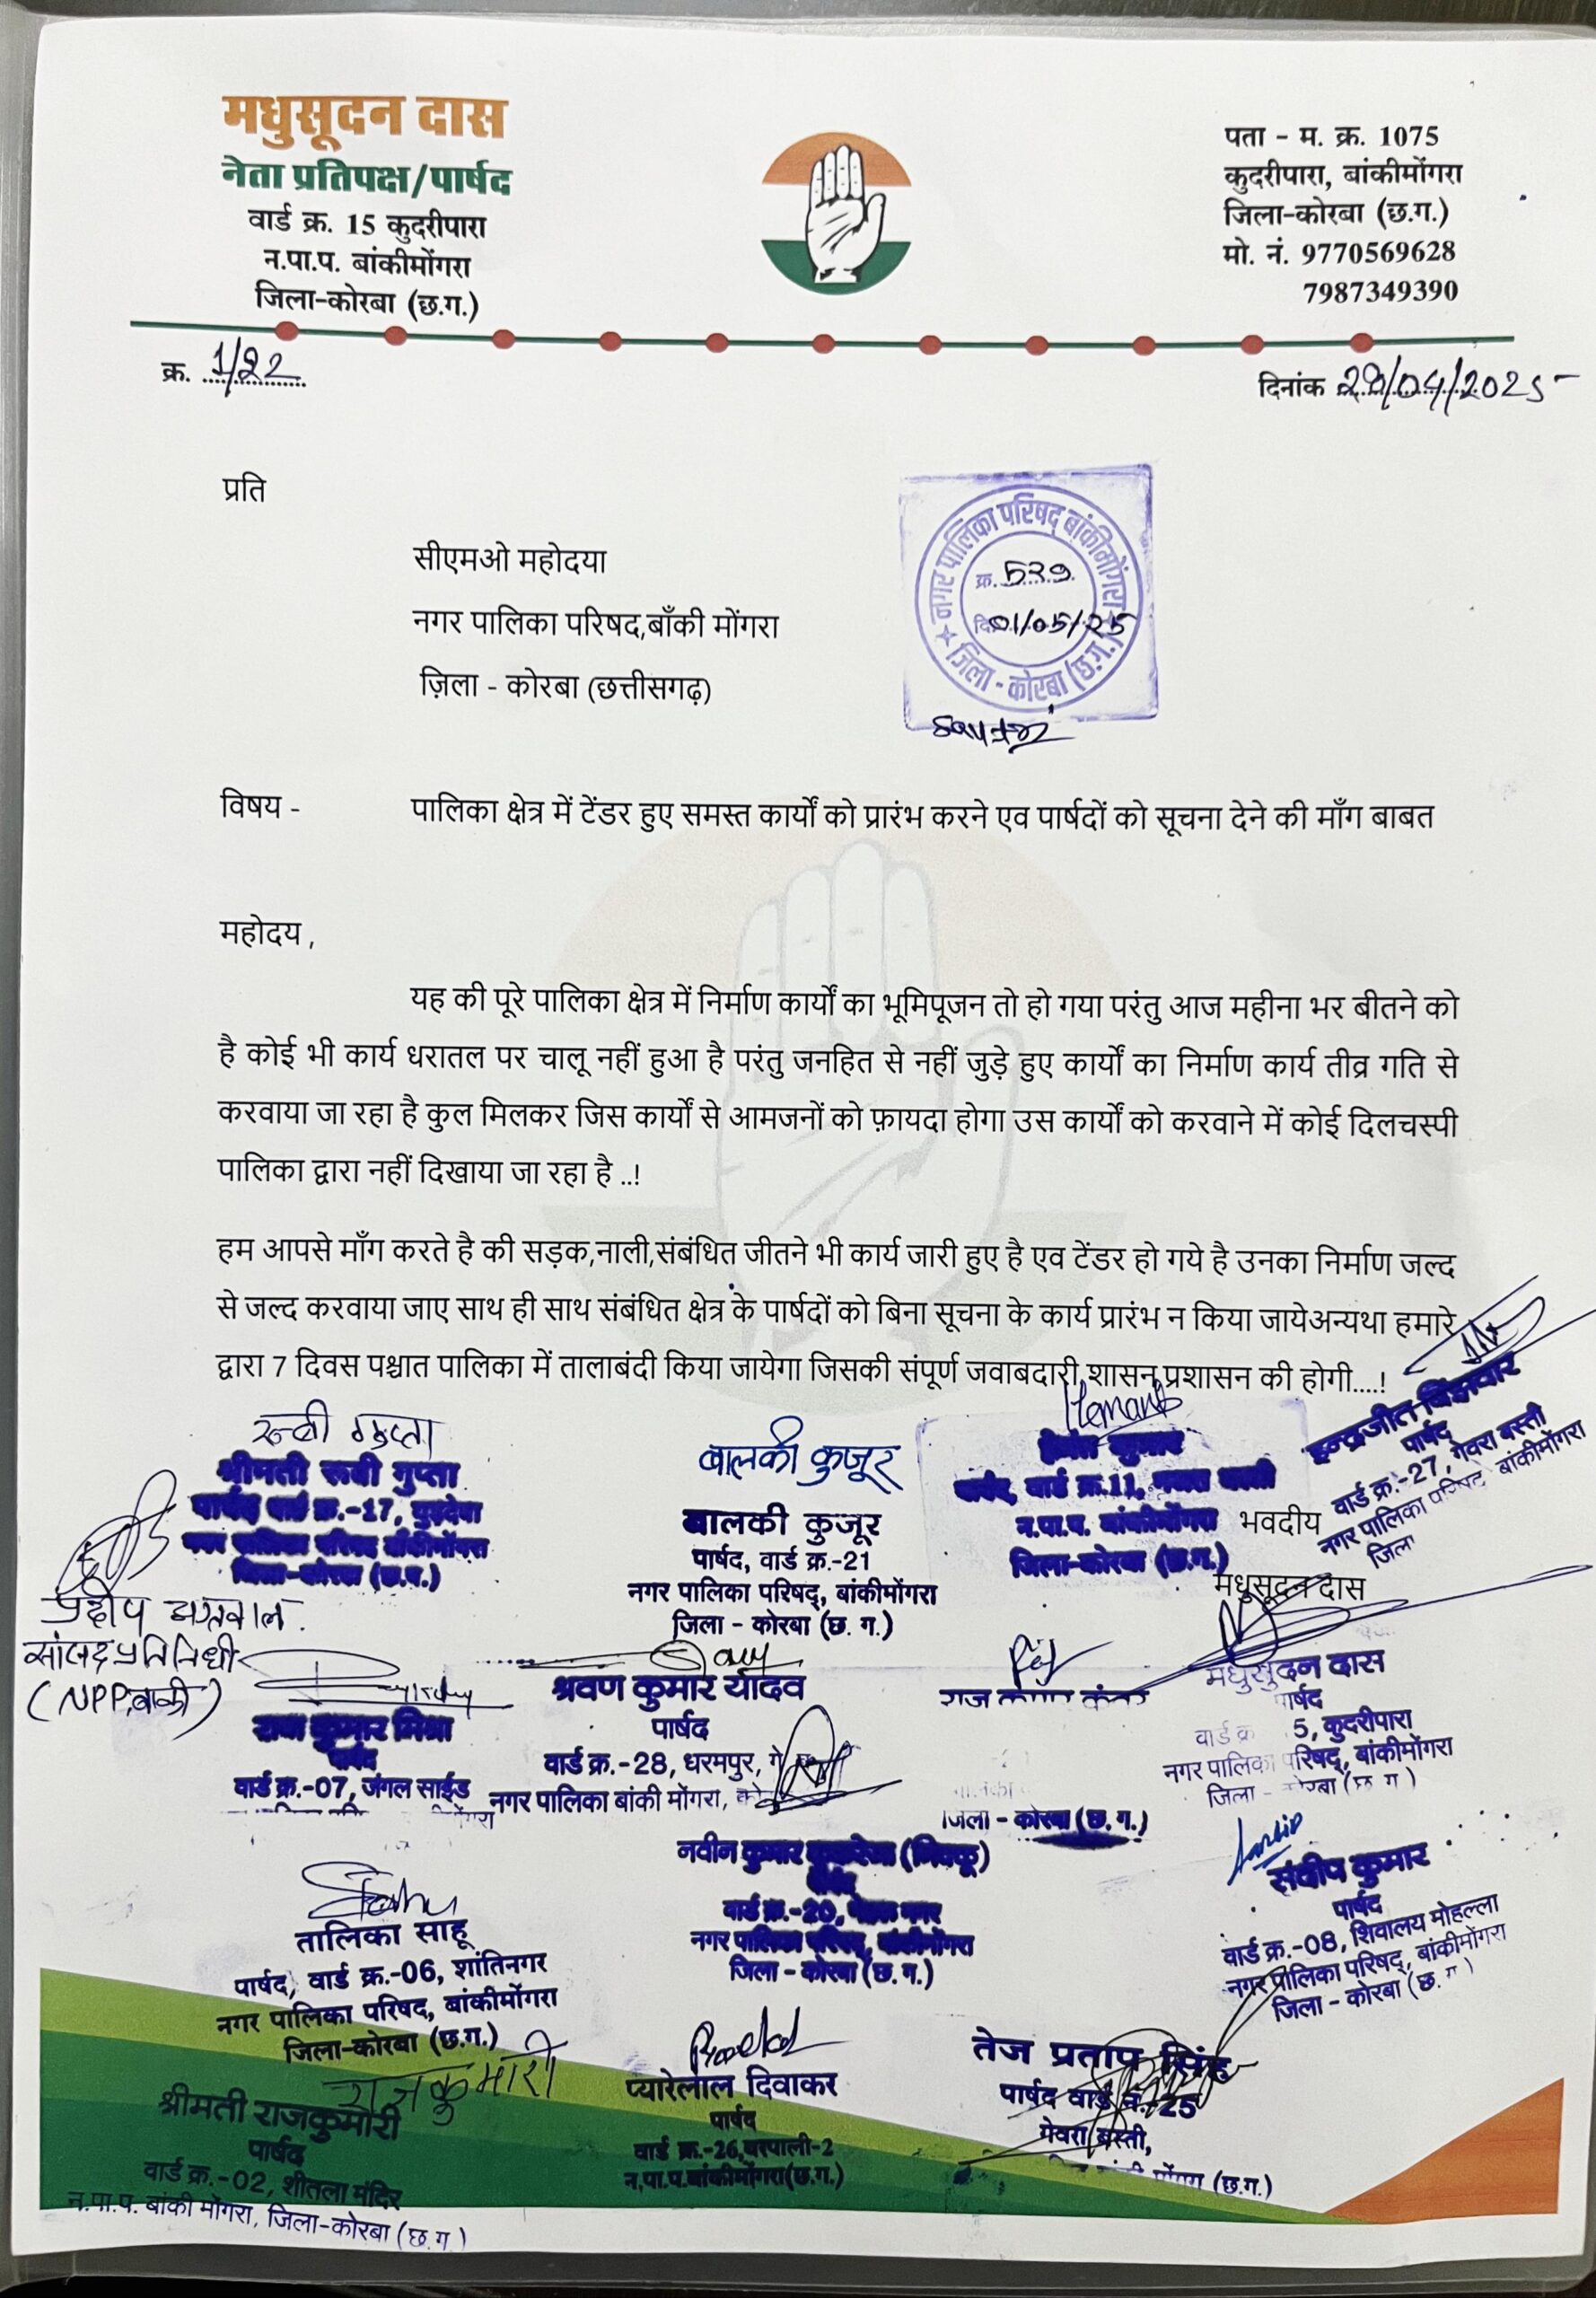 मधुसूदन दास
नेता प्रतिपक्ष/पार्षद
वार्ड क्र. 15 कुदरीपारा
न.पा.प. बांकीमोंगरा
जिला-कोरबा (छ.ग.)
पता - म. क्र. 1075
कुदरीपारा, बांकीमोंगरा
जिला-कोरबा (छ.ग.)
मो. नं. 9770569628
7987349390
क्र. 1/22
दिनांक 29/04/2025
प्रति
सीएमओ महोदया
नगर पालिका परिषद,बाँकी मोंगरा
ज़िला - कोरबा (छत्तीसगढ़)
नगर पालिका परिषद् बांकीमोंगरा
क्र. 539
दि. 01/05/25
जिला - कोरबा (छ.ग.)
विषय - पालिका क्षेत्र में टेंडर हुए समस्त कार्यों को प्रारंभ करने एव पार्षदों को सूचना देने की माँग बाबत
महोदय ,
यह की पूरे पालिका क्षेत्र में निर्माण कार्यों का भूमिपूजन तो हो गया परंतु आज महीना भर बीतने को
है कोई भी कार्य धरातल पर चालू नहीं हुआ है परंतु जनहित से नहीं जुड़े हुए कार्यों का निर्माण कार्य तीव्र गति से
करवाया जा रहा है कुल मिलकर जिस कार्यों से आमजनों को फ़ायदा होगा उस कार्यों को करवाने में कोई दिलचस्पी
पालिका द्वारा नहीं दिखाया जा रहा है ..!
हम आपसे माँग करते है की सड़क,नाली,संबंधित जीतने भी कार्य जारी हुए है एव टेंडर हो गये है उनका निर्माण जल्द
से जल्द करवाया जाए साथ ही साथ संबंधित क्षेत्र के पार्षदों को बिना सूचना के कार्य प्रारंभ न किया जायेअन्यथा हमारे
द्वारा 7 दिवस पश्चात पालिका में तालाबंदी किया जायेगा जिसकी संपूर्ण जवाबदारी शासन प्रशासन की होगी....!
रूबी गुप्ता
श्रीमती रूबी गुप्ता
पार्षद वार्ड क्र.-17,
नगर पालिका परिषद बाँकीमोंगरा
जिला-कोरबा (छ.ग.)
बालकी कुजूर
बालकी कुजूर
पार्षद, वार्ड क्र.-21
नगर पालिका परिषद्, बांकीमोंगरा
जिला - कोरबा (छ. ग.)
Hemant
हेमंत कुमार
पार्षद, वार्ड क्र.11,
न.पा.प. बांकीमोंगरा
जिला-कोरबा (छ.ग.)
इन्द्रजीत बिंझवार
पार्षद
वार्ड क्र.-27, गेवरा बस्ती
नगर पालिका परिषद बांकीमोंगरा
जिला
भवदीय
मधुसूदन दास
प्रदीप अग्रवाल
सांसद प्रतिनिधी
(NPP,बाकी)
मधुसुदन दास
पार्षद
वार्ड क्र 5, कुदरीपारा
नगर पालिका परिषद्, बांकीमोंगरा
जिला - कोरबा (छ ग )
कुमार मिश्रा
पार्षद
वार्ड क्र.-07, जंगल साईड
श्रवण कुमार यादव
पार्षद
वार्ड क्र.-28, धरमपुर,
नगर पालिका बांकी मोंगरा,
जिला - कोरबा (छ. ग.)
नवीन कुमार कुकरेजा (निक्कू)
पार्षद
वार्ड क्र.-20,
नगर पालिका परिषद, बांकीमोंगरा
जिला - कोरबा (छ. ग.)
संदीप कुमार
पार्षद
वार्ड क्र.-08, शिवालय मोहल्ला
नगर पालिका परिषद्, बांकीमोंगरा
जिला - कोरबा (छ. ग )
तालिका साहू
पार्षद, वार्ड क्र.-06, शांतिनगर
नगर पालिका परिषद, बांकीमोंगरा
जिला-कोरबा (छ.ग.)
राजकुमारी
श्रीमती राजकुमारी
पार्षद
वार्ड क्र.-02, शीतला मंदिर
न.पा.प. बांकी मोंगरा, जिला-कोरबा (छ.ग )
प्यारेलाल दिवाकर
पार्षद
वार्ड क्र.-26,बरपाली-2
न.पा.प.बांकीमोंगरा(छ.ग.)
तेज प्रताप सिंह
पार्षद वार्ड नं.-25
गेवरा बस्ती,
मोंगरा (छ.ग.)